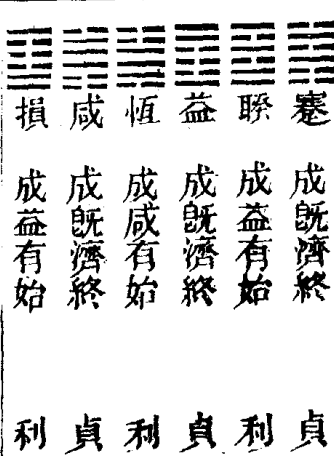 蹇 成既濟終 貞
睽 成益有始 利
益 成既濟終 貞
恆 成咸有始 利
咸 成既濟終 貞
損 成益有始 利